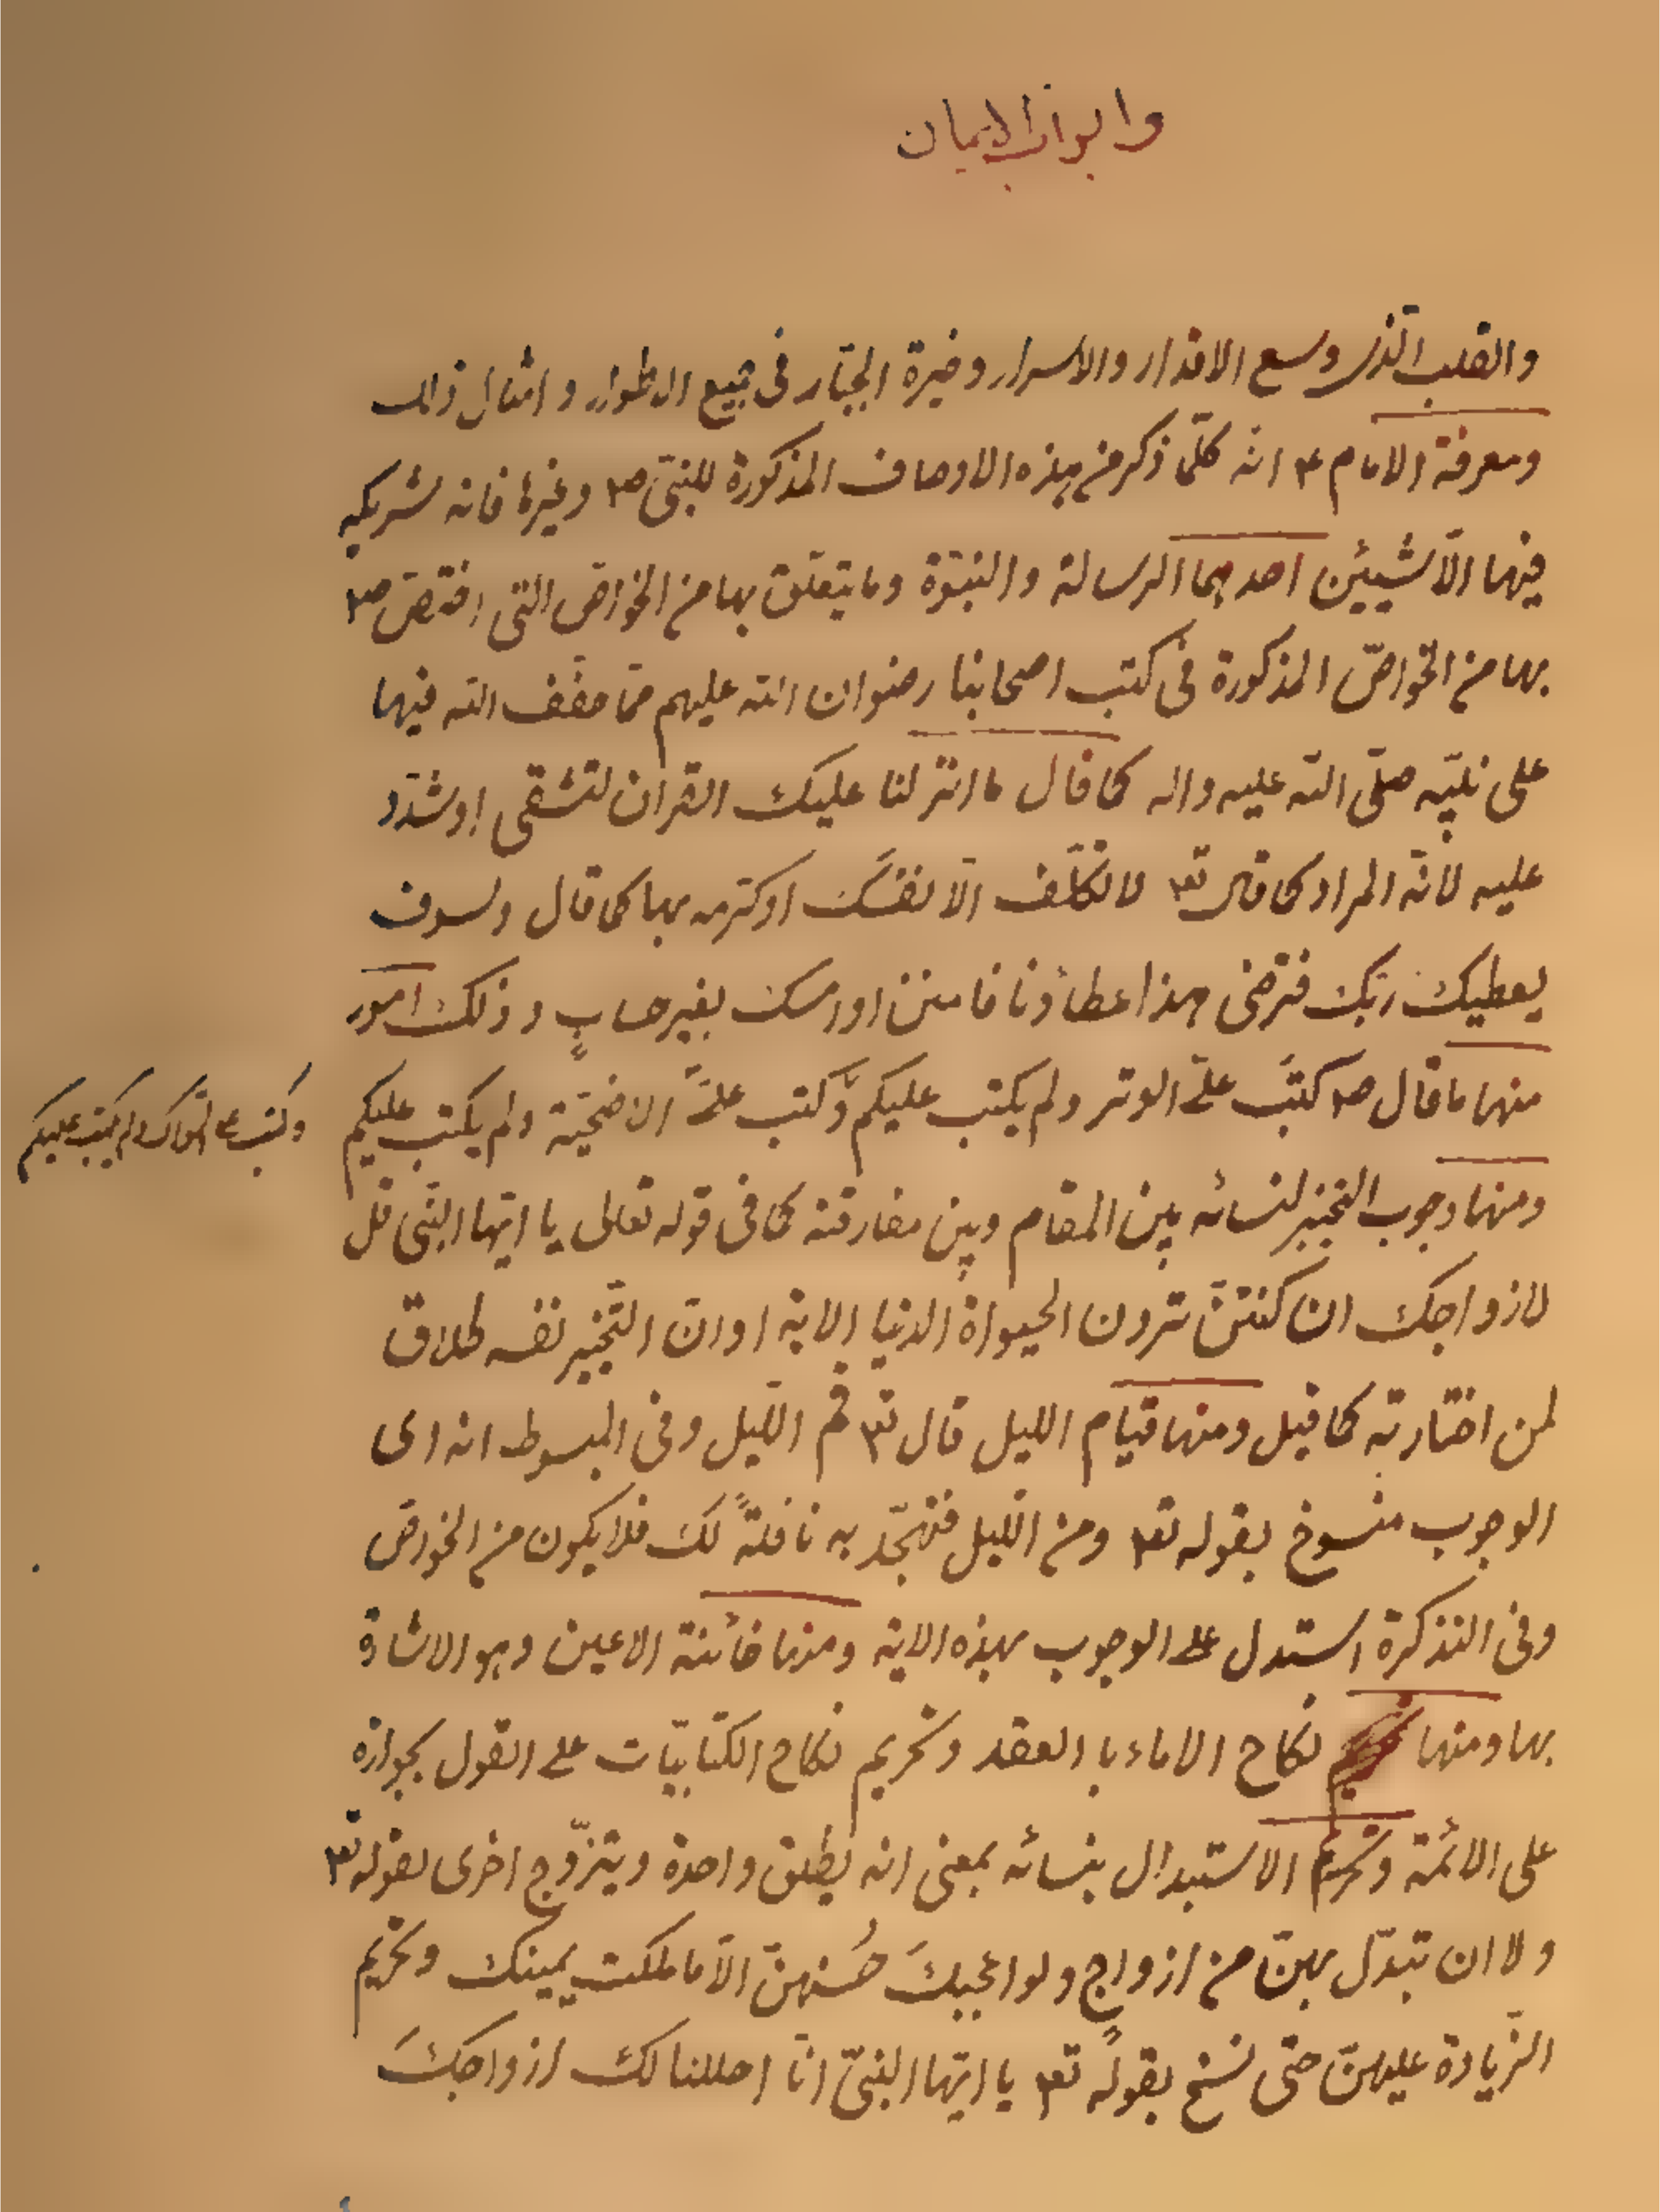 وابواب الايمان
والقلب الذى وسع الاقدار والاسرار وخيرة الجبّار فى جميع الاطوار وامثال ذلك
ومعرفة الامام ع انه كلّما ذكر من هذه الاوصاف المذكورة للنبىّ ص وغيرها فانه شريكه
فيها الّا شيئين احدهما الرسالة والنبوّة وما يتعلّق بها من الخواصّ التى اختصّ ص
بها من الخواصّ المذكورة فى كتب اصحابنا رضوان الله عليهم ممّا خفّف الله فيها
على نبيّه صلّى الله عليه واله كما قال ما انزلنا عليك القران لتشقى او شدّد
عليه لانّه المراد كما قال تع لا تكلّف الّا نفسك او كرّمه بها كما قال ولسوف
يعطيك ربّك فترضى هذا عطاؤنا فامنن او امسك بغير حسابٍ وذلك امور
منها ما قال ص كتب علىّ الوتر ولم يكتب عليكم وكتب علىّ الاضحيّة ولم يكتب عليكم
وكتب ع السواك ولم يكتب عليكم
ومنها وجوب التخيير لنسائه بين المقام وبين مفارقته كما فى قوله تعالى يا ايّها النبّى قل
لازواجك ان كنتنّ تردن الحيواة الدنيا الاية او انّ التّخيير نفسه طلاق
لمن اختارته كما قيل ومنها قيام الليل قال تع قم اللّيل وفى المبسوط انه اى
الوجوب منسوخ بقوله تع ومن اللّيل فتهجّد به نافلةً لك فلا يكون من الخواص
وفى التذكرة استدل على الوجوب بهذه الاية ومنها خائنة الاعين وهو الاشارة
بها ومنها تحريم نكاح الاماء با العقد وتحريم نكاح الكتابيّات على القول بجوازه
على الائمّة وتحريم الاستبدال بنسائه بمعنى انه يطلق واحدة ويتزّوج اخرى لقوله تع
ولا ان تبدّل بهنّ من ازواج ولو اعجبكَ حُسنهنّ الّا ما ملكت يمينك وتحريم
الزّيادة عليهنّ حتى نسخ بقوله تع يا ايّها النبىّ انّا احللنا لك ازواجكَ